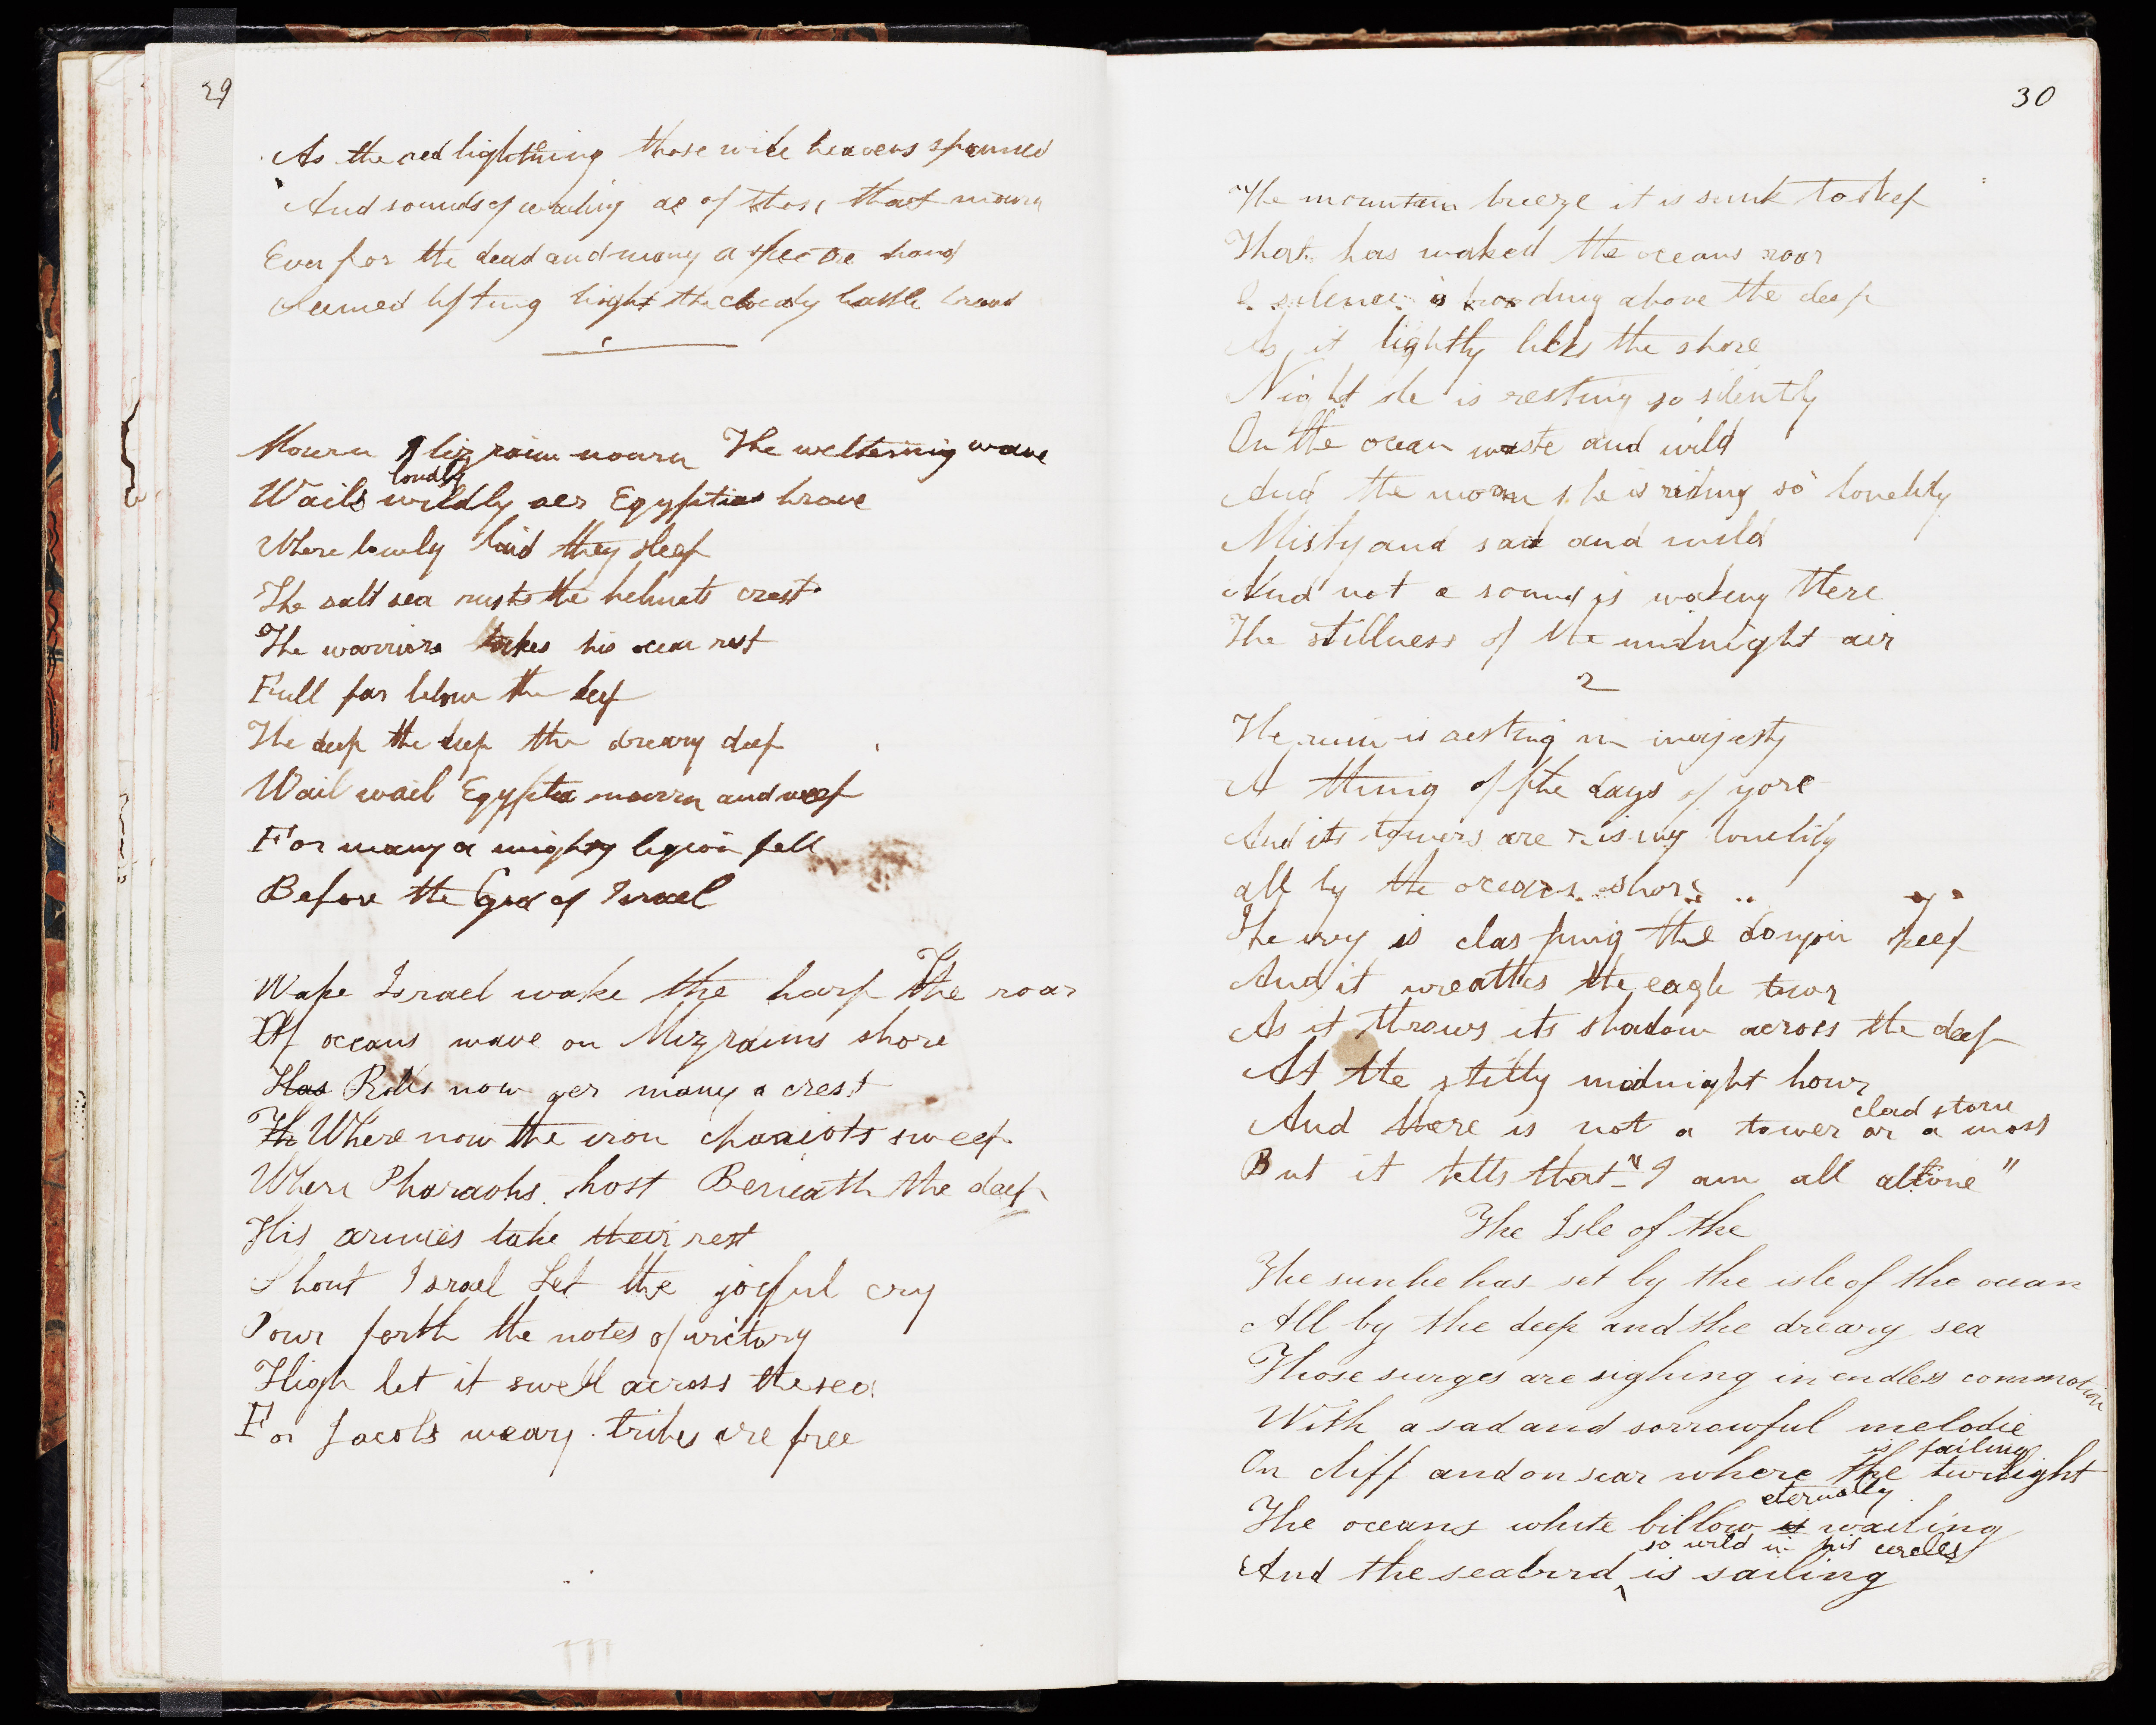 29
As the red lightning those wide heavens spanned
And sounds of wailing as of those that mourn
Ever for the dead and many a spectre hand
Seemed lifting high the cloudy battle brand
Mourn Mizraim mourn The weltering wave
loudly
Wails wildly oer Egyptias brave
Where lowly laid they sleep
The salt sea rusts the helmets crest
The warriors takes his ocean rest
Full far below the deep
The deep the deep the dreary deep
Wail wail Egyptia mourn and weep
For many a mighty legion fell
Before the God of Israel
Wake Israel wake the harp The roar
Of oceans wave on Mizraims shore
Has Rolls now oer many a crest
Th Where now the iron chariots sweep
Where Pharaohs host Beneath the deep
His armies take their rest
Shout Israel Let the joyful cry
Pour forth the notes of victory
High let it swell across the sea
For Jacobs weary tribes are free
30
The mountain breeze it is sunk to sleep
That has waked the oceans roar
& silence is brooding above the deep
As it lightly licks the shore
Night she is resting so silently
On the ocean waste and wild
And the moon she is riding so lonelily
Misty and sad and mild
And not a sound is waking there
The stillness of the midnight air
2
The ruin is resting in majesty
A thing of the days of yore
And its towers are rising lonelily
all by the oceans shore
The ivy is clasping the donjon keep
And it wreathes the eagle tower
As it throws its shadow across the deep
At the stilly midnight hour
clad stone
And there is not a tower or a moss
But it tells that "I am all alone"
The Isle of the
The sun he has set by the isle of the ocean
All by the deep and the dreary sea
Those surges are sighing in endless commotion
With a sad and sorrowful melodie
is failing
On cliff and on scar where the twilight
eternally
The oceans white billow is wailing
so wild in his circles
And the seabird ^ is sailing